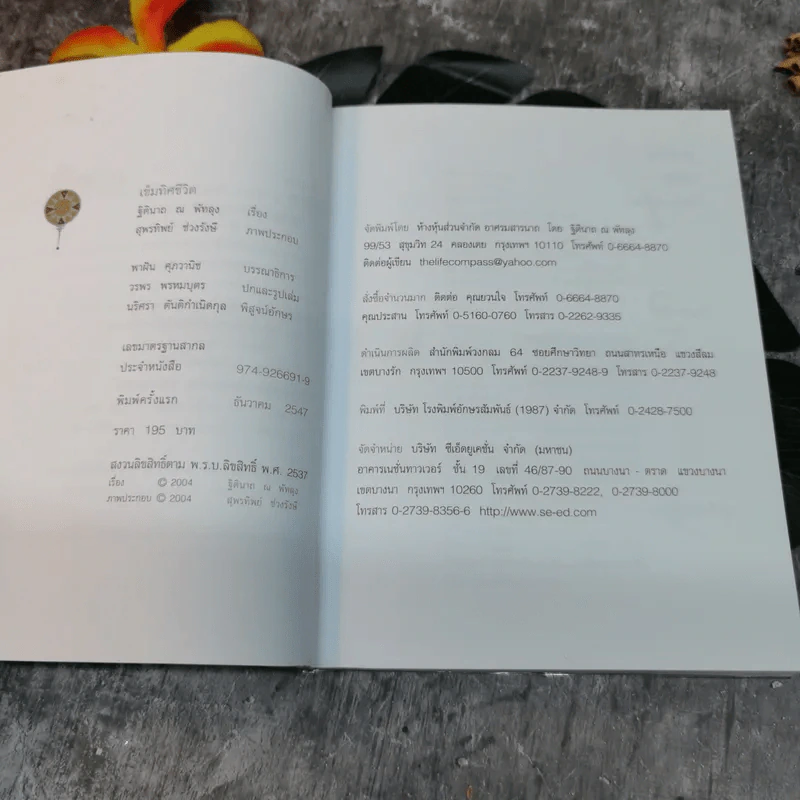 เข็มทิศชีวิต
ฐิตินาถ ณ พัทลุง เรื่อง
สุพรทิพย์ ช่วงรังษี ภาพประกอบ
พาฝัน ศุภวานิช บรรณาธิการ
วรพร พรหมบุตร ปกและรูปเล่ม
นริศรา ตันติกำเนิดกุล พิสูจน์อักษร
เลขมาตรฐานสากล
ประจำหนังสือ 974-926691-9
พิมพ์ครั้งแรก ธันวาคม 2547
ราคา 195 บาท
สงวนลิขสิทธิ์ตาม พ.ร.บ.ลิขสิทธิ์ พ.ศ. 2537
เรื่อง © 2004 ฐิตินาถ ณ พัทลุง
ภาพประกอบ © 2004 สุพรทิพย์ ช่วงรังษี
จัดพิมพ์โดย ห้างหุ้นส่วนจำกัด อาศรมสารนาถ โดย ฐิตินาถ ณ พัทลุง
99/53 สุขุมวิท 24 คลองเตย กรุงเทพฯ 10110 โทรศัพท์ 0-6664-8870
ติดต่อผู้เขียน thelifecompass@yahoo.com
สั่งซื้อจำนวนมาก ติดต่อ คุณยวนใจ โทรศัพท์ 0-6664-8870
คุณประสาน โทรศัพท์ 0-5160-0760 โทรสาร 0-2262-9335
ดำเนินการผลิต สำนักพิมพ์วงกลม 64 ซอยศึกษาวิทยา ถนนสาทรเหนือ แขวงสีลม
เขตบางรัก กรุงเทพฯ 10500 โทรศัพท์ 0-2237-9248-9 โทรสาร 0-2237-9248
พิมพ์ที่ บริษัท โรงพิมพ์อักษรสัมพันธ์ (1987) จำกัด โทรศัพท์ 0-2428-7500
จัดจำหน่าย บริษัท ซีเอ็ดยูเคชั่น จำกัด (มหาชน)
อาคารเนชั่นทาวเวอร์ ชั้น 19 เลขที่ 46/87-90 ถนนบางนา - ตราด แขวงบางนา
เขตบางนา กรุงเทพฯ 10260 โทรศัพท์ 0-2739-8222, 0-2739-8000
โทรสาร 0-2739-8356-6 http://www.se-ed.com